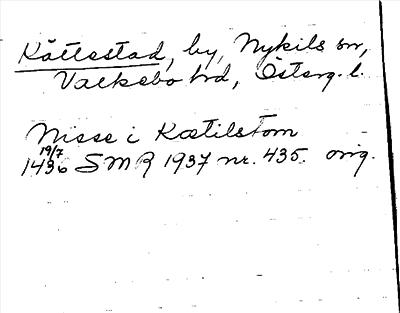 Kättestad, by, Nykils sn,
Valkebo hd, Österg. l.
Nisse i Kætilstom
19/7
1436 SMR 1937 nr. 435. orig.